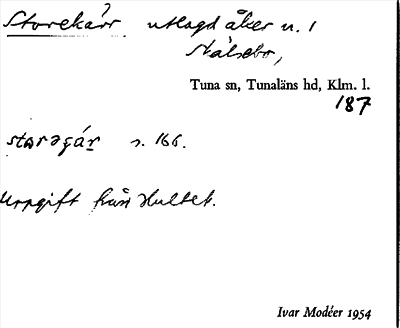 Storekärr utlagd åker n. 1
Stålsebo,
Tuna sn, Tunaläns hd, Klm. l.
187
s. 166.
Uppgift från Hultet.
Ivar Modéer 1954